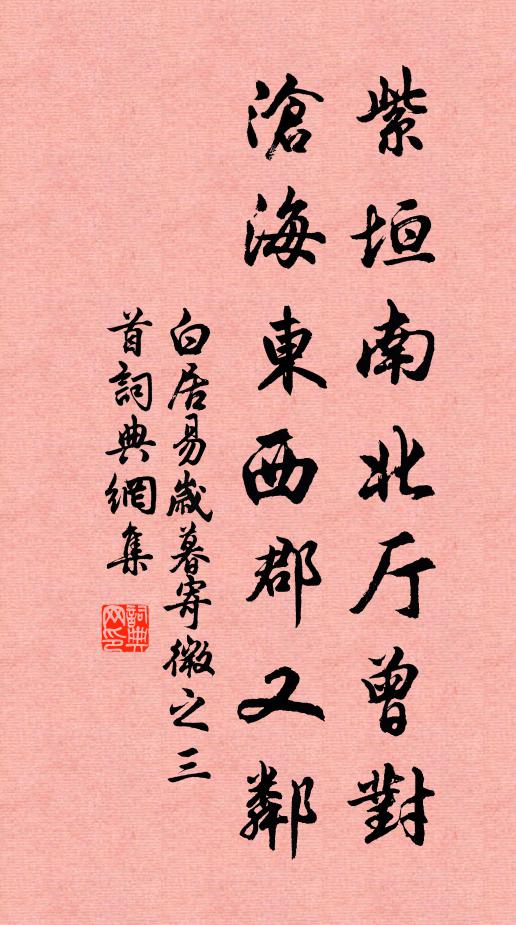 紫垣南北厅曾對
滄海東西郡又鄰
白居易歲暮寄微之三
首詞典網集
詞典网印